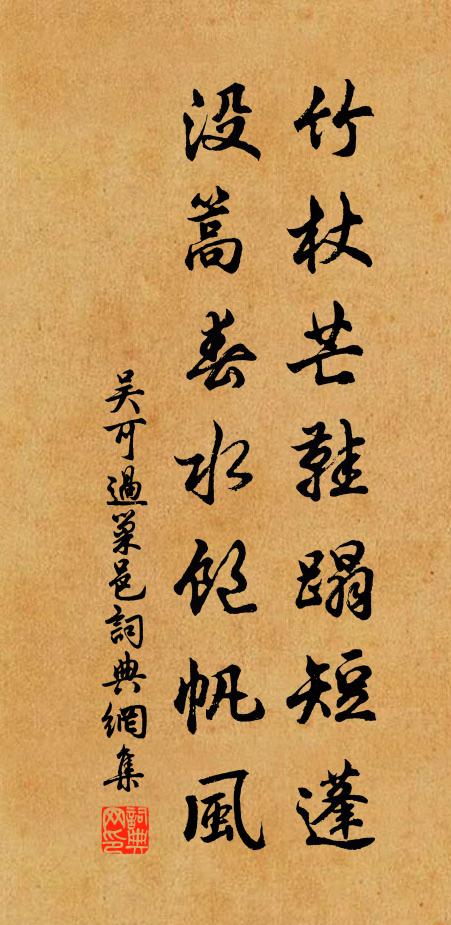 竹杖芒鞋蹋短蓬
没篙春水飽帆風
吴可過巢邑詞典網集
詞典网印